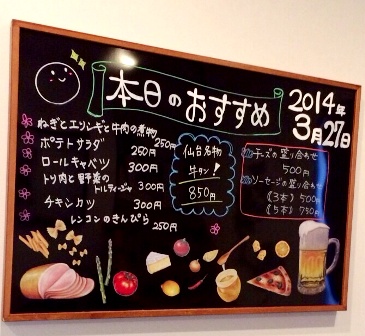 本日のおすすめ
2014年
3月27日
ねぎとエリンギと牛肉の煮物
250円
ポテトサラダ
250円
ロールキャベツ 300円
トリ肉と夏野菜の
トルティージャ 300円
チキンカツ 300円
レンコンのきんぴら
250円
仙台名物
牛タン!
850円
チーズの盛り合わせ
500円
ソーセージの盛り合わせ
(3本) 500円
(5本) 750円